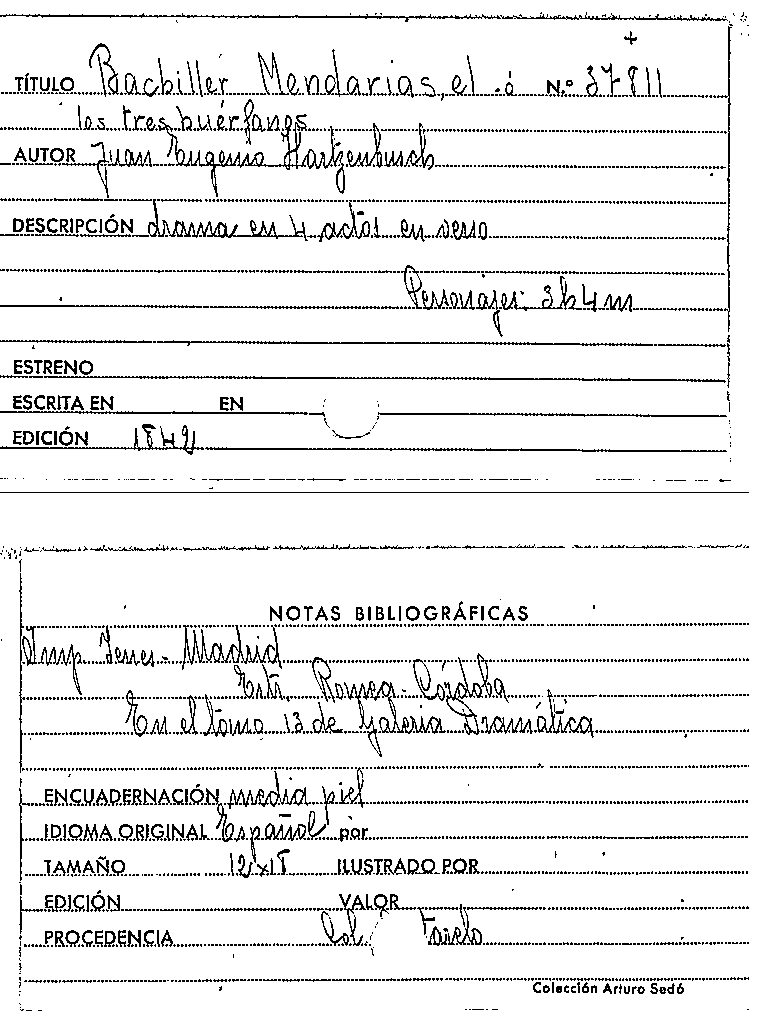 +
TÍTULO Bachiller Mendarias, el .ó N.º 37811
los tres huérfanos
AUTOR Juan Eugenio Hartzenbusch
DESCRIPCIÓN drama en 4 actos en verso
Personajes: 3h 4m
ESTRENO
ESCRITA EN EN
EDICIÓN 1842
NOTAS BIBLIOGRÁFICAS
Imp Yenes - Madrid
Estr. Romea - Córdoba
En el tomo 13 de Galeria Dramática
ENCUADERNACIÓN media piel
IDIOMA ORIGINAL Español por
TAMAÑO 12x18 ILUSTRADO POR
EDICIÓN VALOR
PROCEDENCIA Col.
Colección Arturo Sedó